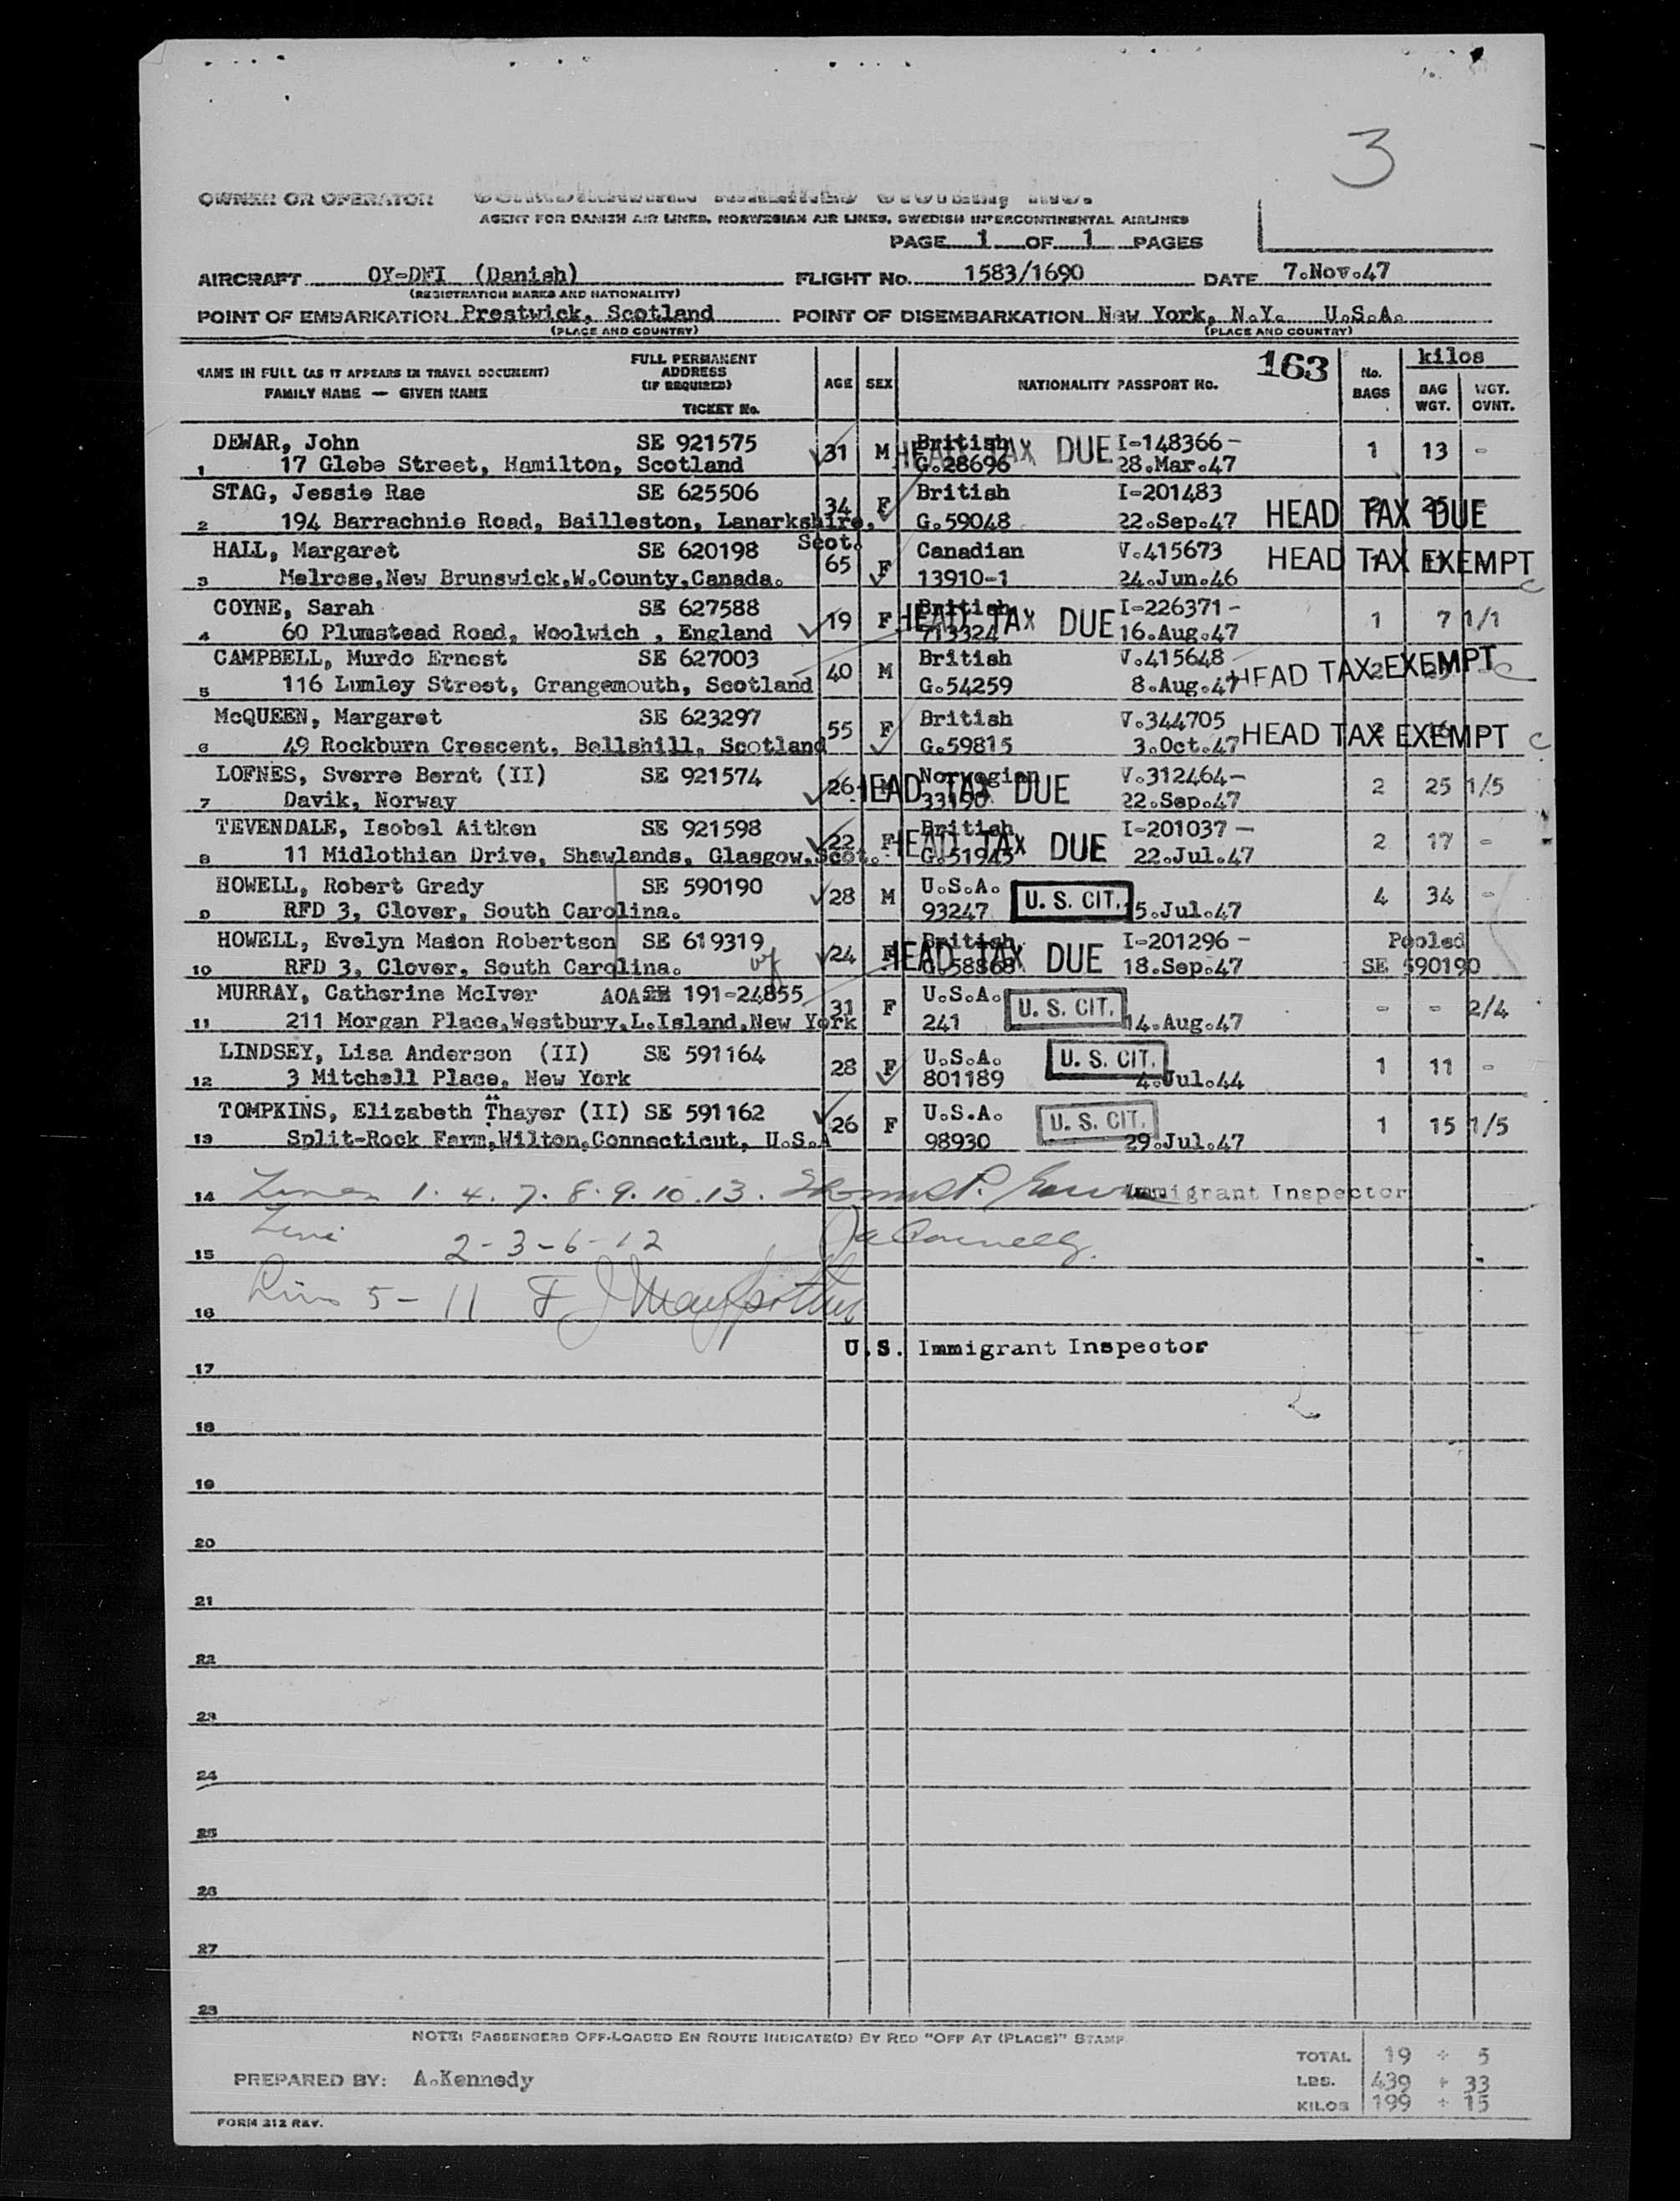 3
OWNER OR OPERATOR
AGENT FOR DANISH AIR LINES, NORWEGIAN AIR LINES, SWEDISH INTERCONTINENTAL AIRLINES
PAGE 1 OF 1 PAGES
AIRCRAFT OY-DFI (Danish) FLIGHT No. 1583/1690 DATE 7.Nov.47
(REGISTRATION MARKS AND NATIONALITY)
POINT OF EMBARKATION Prestwick, Scotland POINT OF DISEMBARKATION New York, N.Y. U.S.A.
(PLACE AND COUNTRY) (PLACE AND COUNTRY)
NAME IN FULL (AS IT APPEARS IN TRAVEL DOCUMENT) FULL PERMANENT ADDRESS (IF REQUIRED) AGE SEX NATIONALITY PASSPORT No. 163 No. BAGS kilos
FAMILY NAME — GIVEN NAME TICKET No. BAG WGT. WGT. OVNT.
DEWAR, John SE 921575 31 M British HEAD TAX DUE I-148366- 1 13 -
1 17 Glebe Street, Hamilton, Scotland G.28696 28.Mar.47
STAG, Jessie Rae SE 625506 34 F British I-201483 HEAD TAX DUE
2 194 Barrachnie Road, Bailleston, Lanarkshire, Scot. G.59048 22.Sep.47
HALL, Margaret SE 620198 65 F Canadian V.415673 HEAD TAX EXEMPT c
3 Melrose,New Brunswick,W.County,Canada. 13910-1 24.Jun.46
COYNE, Sarah SE 627588 19 F British HEAD TAX DUE I-226371- 1 7 1/1
4 60 Plumstead Road, Woolwich , England 713324 16.Aug.47
CAMPBELL, Murdo Ernest SE 627003 40 M British V.415648 HEAD TAX EXEMPT c
5 116 Lumley Street, Grangemouth, Scotland G.54259 8.Aug.47
McQUEEN, Margaret SE 623297 55 F British V.344705 HEAD TAX EXEMPT c
6 49 Rockburn Crescent, Bellshill, Scotland G.59815 3.Oct.47
LOFNES, Sverre Bernt (II) SE 921574 26 Norwegian HEAD TAX DUE V.312464- 2 25 1/5
7 Davik, Norway 33190 22.Sep.47
TEVENDALE, Isobel Aitken SE 921598 22 F British HEAD TAX DUE I-201037- 2 17 -
8 11 Midlothian Drive, Shawlands, Glasgow,Scot. G.51945 22.Jul.47
HOWELL, Robert Grady SE 590190 28 M U.S.A. U. S. CIT. 4 34 -
9 RFD 3, Clover, South Carolina. 93247 15.Jul.47
HOWELL, Evelyn Mason Robertson SE 619319 24 F British HEAD TAX DUE I-201296- Pooled
10 RFD 3, Clover, South Carolina. G.58868 18.Sep.47 SE 590190
MURRAY, Catherine McIver AOA 191-24855 31 F U.S.A. U. S. CIT. - - 2/4
11 211 Morgan Place,Westbury,L.Island,New York 241 14.Aug.47
LINDSEY, Lisa Anderson (II) SE 591164 28 F U.S.A. U. S. CIT. 1 11 -
12 3 Mitchell Place, New York 801189 4.Jul.44
TOMPKINS, Elizabeth Thayer (II) SE 591162 26 F U.S.A. U. S. CIT. 1 15 1/5
13 Split-Rock Farm,Wilton,Connecticut, U.S.A 98930 29.Jul.47
14 Lines 1. 4. 7. 8. 9. 10. 13. Immigrant Inspector
15 Line 2-3-6-12
16 Line 5-11
U.S. Immigrant Inspector
17
18
19
20
21
22
23
24
25
26
27
28
NOTE: PASSENGERS OFF-LOADED EN ROUTE INDICATE(D) BY RED "OFF AT (PLACE)" STAMP
TOTAL 19 + 5
PREPARED BY: A.Kennedy LBS. 439 + 33
KILOS 199 + 15
FORM 312 REV.